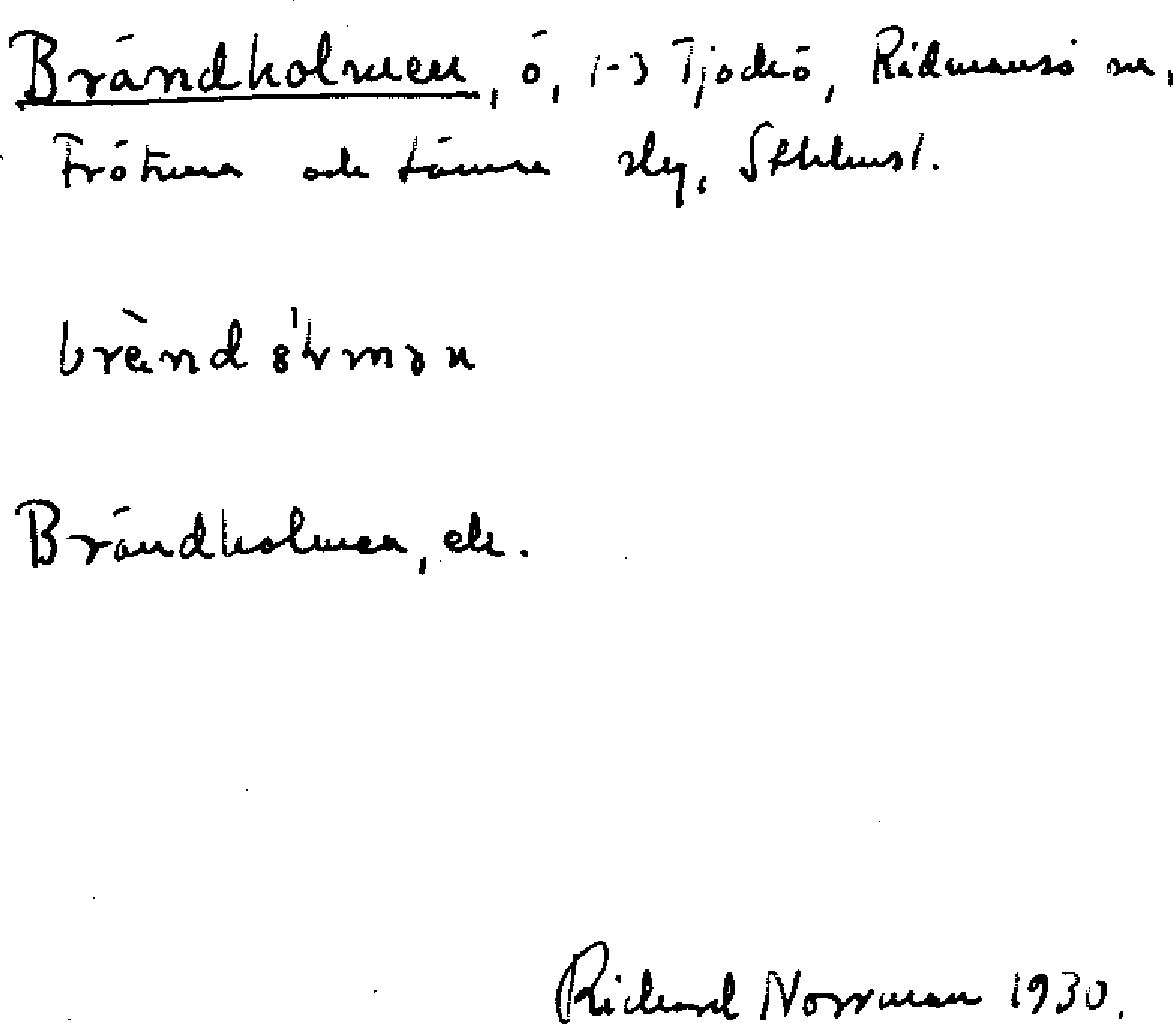 Brändholmen, ö, 1-3 Tjockö, Rådmansö sn,
Frötuna och Länna slg, Sthlms l.
brènd ólmən
Brändholmen, ek.
Richard Norrman 1930.